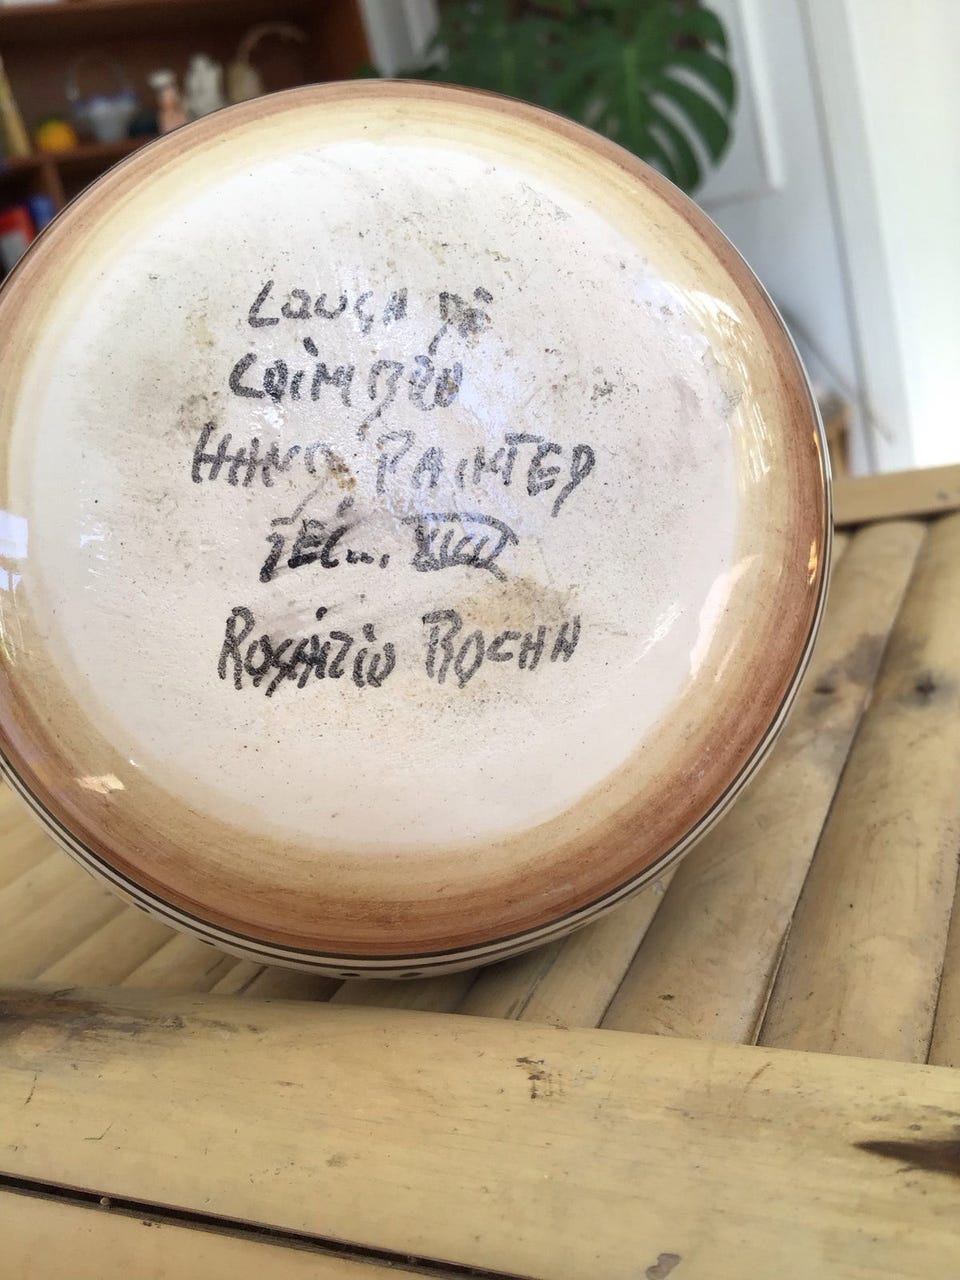 LOUÇA DE
COIMBRA
HAND PAINTED
SÉC... XVII
ROSÁRIO ROCHA